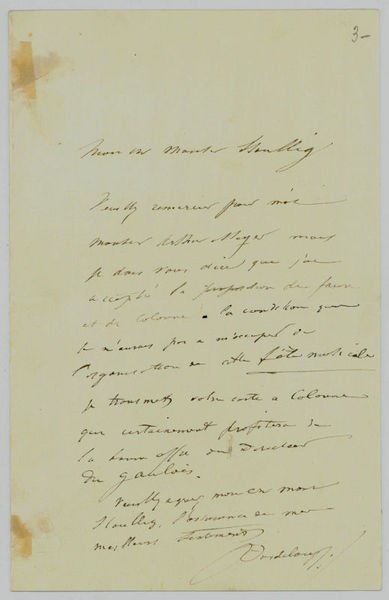 3-
Mon cher Monsieur Stoullig
Veuillez remercier pour moi
Monsieur Arthur Meyer mais
je dois vous dire que j'ai
accepté la proposition du
et de Colonne à la condition que
je n'aurais pas à m'occuper de
l'organisation de cette fête musicale
je transmets votre carte à Colonne
qui certainement profitera de
la bonne offre du Directeur
du Gaulois.
Veuillez agréer mon cher Monsieur
Stoullig, l'assurance de mes
meilleurs sentiments
Pasdeloup